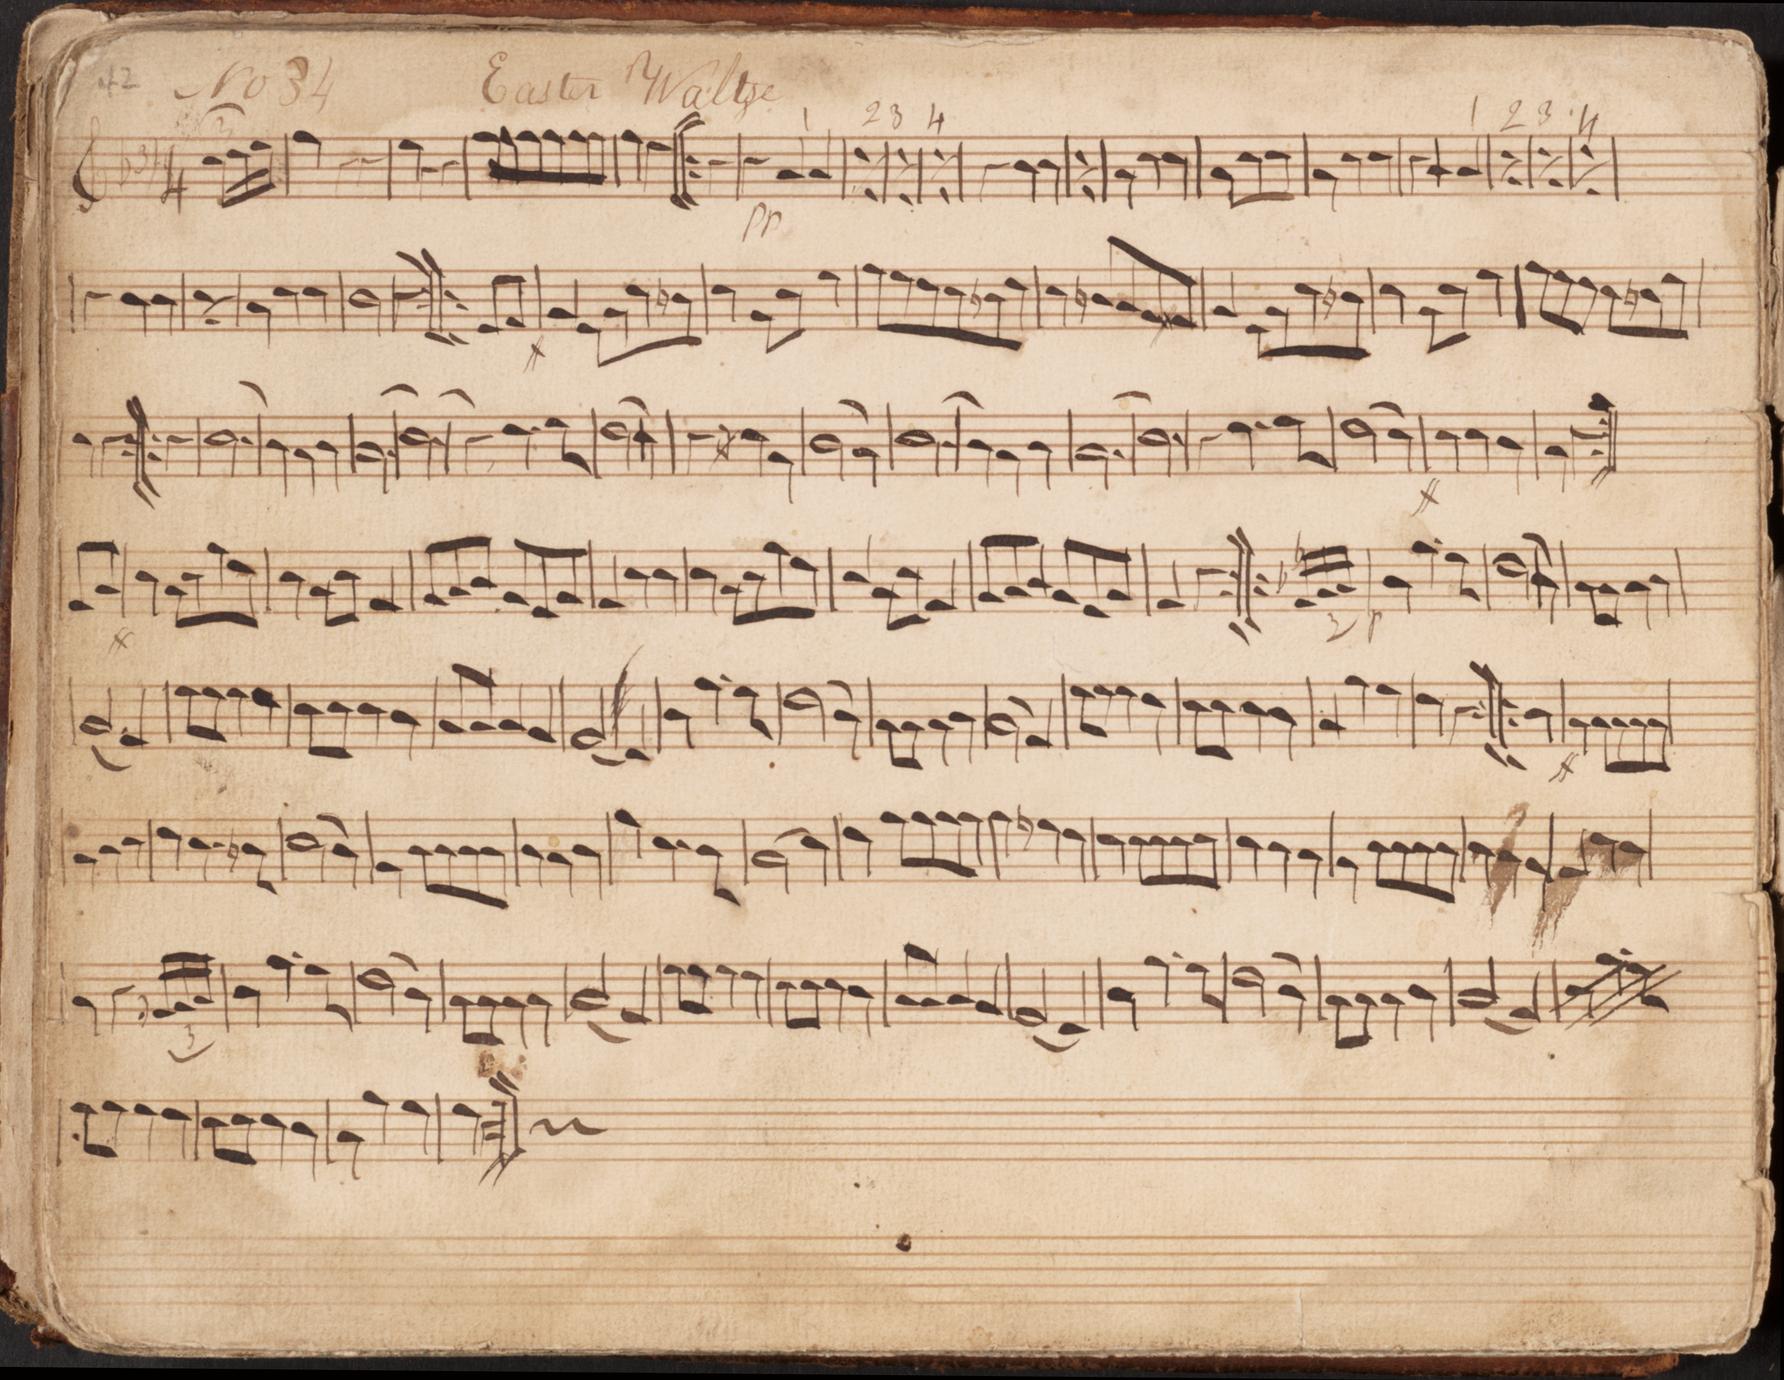 42 No 34 Easter Waltze
3
1 2 3 4 1 2 3 4
3
4
pp
3 P
3